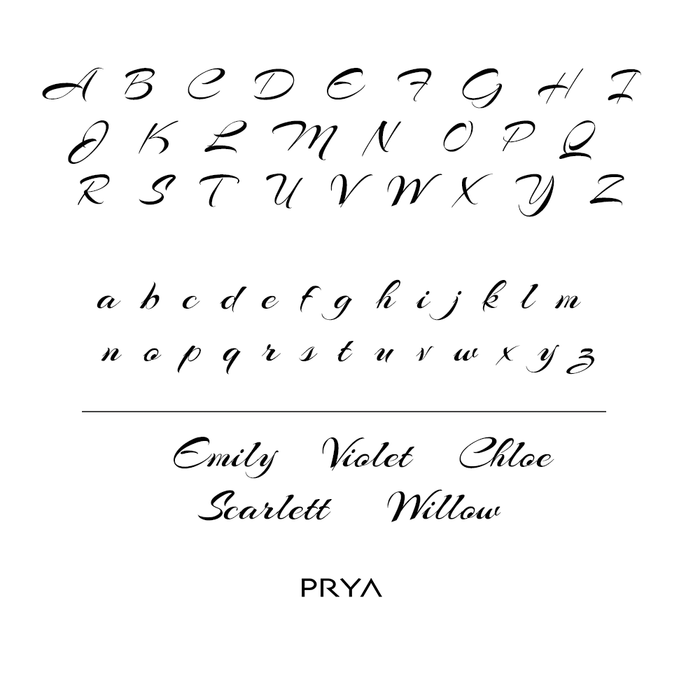 A B C D E F G H I
J K L M N O P Q
R S T U V W X Y Z
a b c d e f g h i j k l m
n o p q r s t u v w x y z
Emily Violet Chloe
Scarlett Willow
PRYA